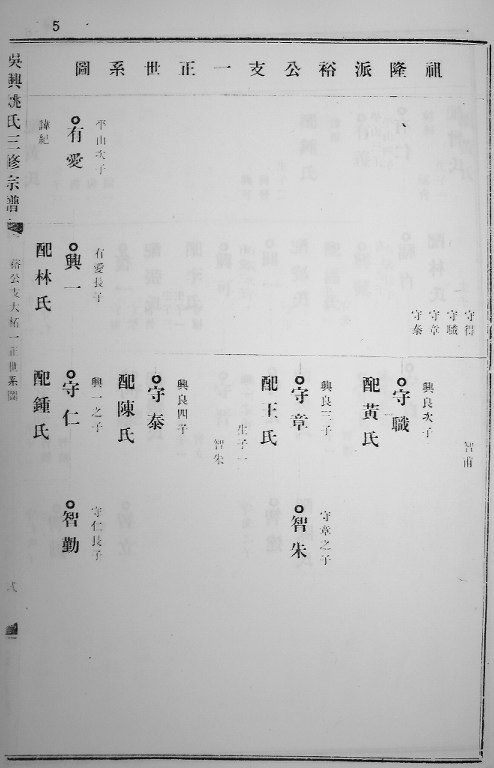 5
祖隆派裕公支一正世系圖
守得
守職
守章
守泰
智甫
興良次子
守職
配黃氏
興良三子
守章
配王氏
生子一
智朱
守章之子
智朱
興良四子
守泰
配陳氏
平山次子
有愛
諱紀
有愛長子
興一
配林氏
興一之子
守仁
配鍾氏
守仁長子
智勤
吳興姚氏三修宗譜
裕公支大柘一正世系圖